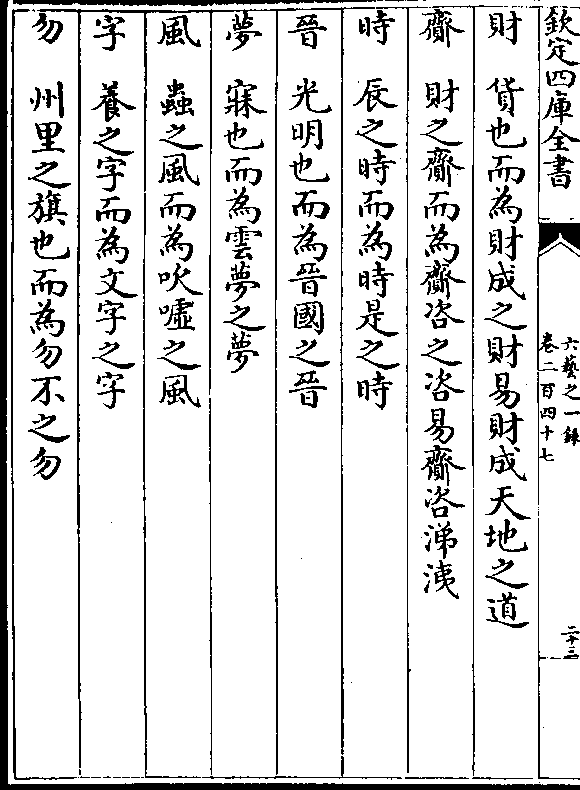 欽定四庫全書
六藝之一錄
卷二百四十七
二十三
財 貨也而為財成之財易財成天地之道
齎 財之齎而為齎咨之咨易齎咨涕洟
時 辰之時而為時是之時
晉 光明也而為晉國之晉
夢 寐也而為雲夢之夢
風 蟲之風而為吹噓之風
字 養之字而為文字之字
勿 州里之旗也而為勿不之勿